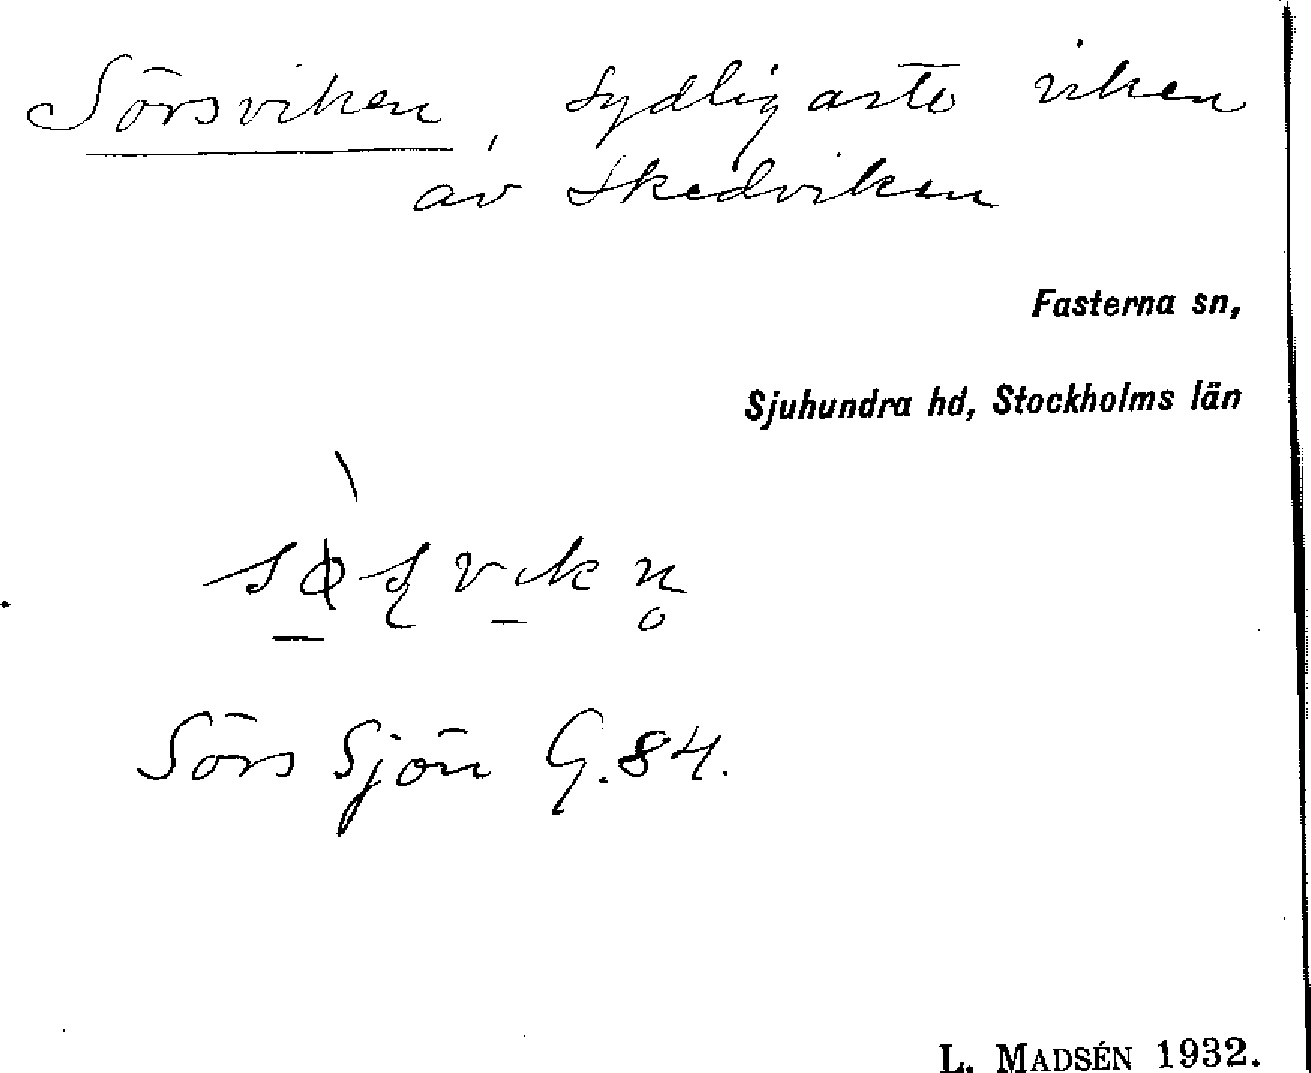 Sörsviken, sydligaste viken
av Skedviken
Fasterna sn,
Sjuhundra hd, Stockholms län
Sörs Sjön G.84.
L. MADSÉN 1932.